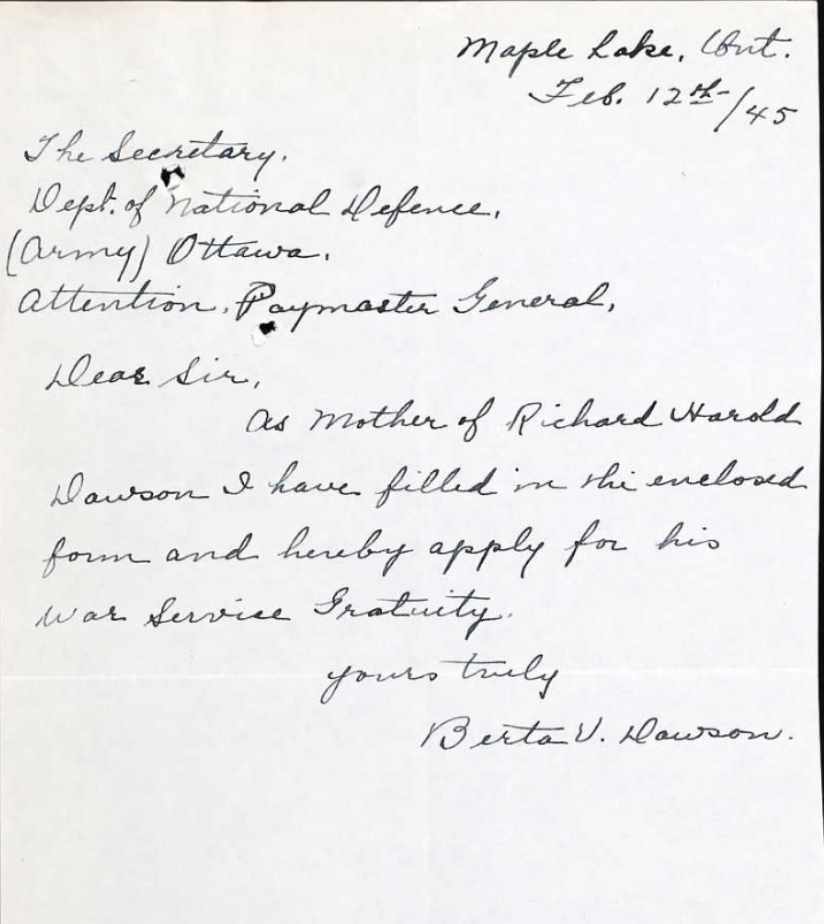 Maple Lake, Ont.
Feb. 12th/45
The Secretary.
Dept. of National Defence,
(Army) Ottawa.
Attention, Paymaster General,
Dear Sir,
As Mother of Richard Harold
Dawson I have filled in the enclosed
form and hereby apply for his
War Service Gratuity.
yours truly
Berta V. Dawson.